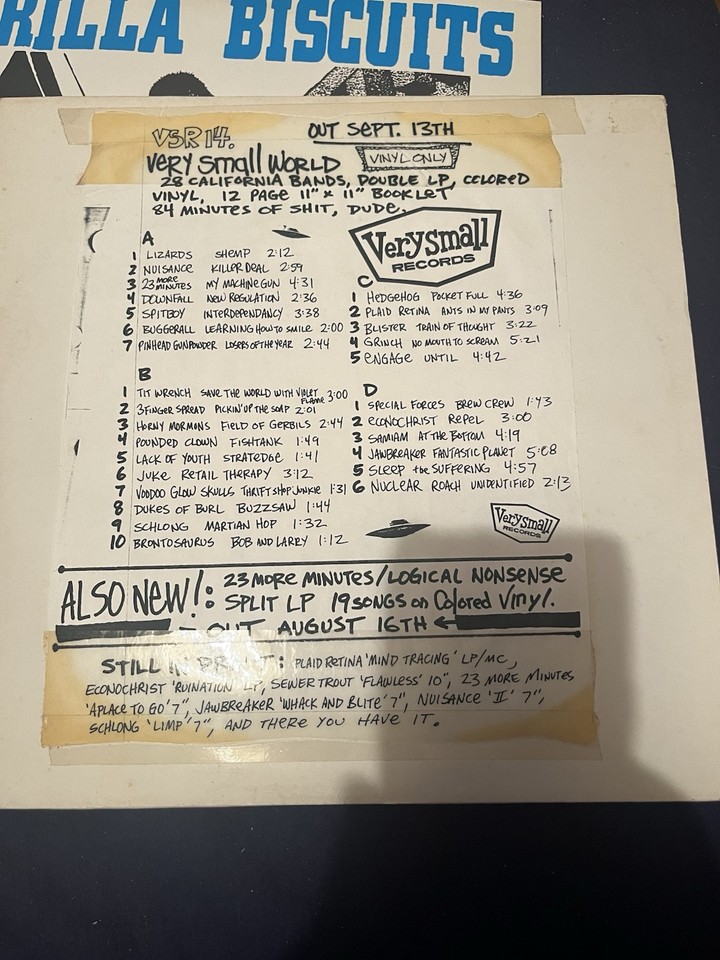 RILLA BISCUITS
VSR 14.
OUT SEPT. 13TH
Very Small World
VINYL ONLY
28 CALIFORNIA BANDS, DOUBLE LP, COLORED
VINYL, 12 PAGE 11" x 11" BOOKLET
84 MINUTES OF SHIT, DUDE.
Very small
RECORDS
A
1 LIZARDS SHEMP 2:12
2 NUISANCE KILLER DEAL 2:59
3 23 MORE MINUTES MY MACHINE GUN 4:31
4 DOWNFALL NEW REGULATION 2:36
5 SPITBOY INTERDEPENDANCY 3:38
6 BUGGERALL LEARNING HOW TO SMILE 2:00
7 PINHEAD GUNPOWDER LOSERS OF THE YEAR 2:44
B
1 TIT WRENCH SAVE THE WORLD WITH VIOLET FLAME 3:00
2 3 FINGER SPREAD PICKIN' UP THE SOAP 2:01
3 HORNY MORMONS FIELD OF GERBILS 2:44
4 POUNDED CLOWN FISHTANK 1:49
5 LACK OF YOUTH STRATEDGE 1:41
6 JUKE RETAIL THERAPY 3:12
7 VOODOO GLOW SKULLS THRIFT SHOP JUNKIE 1:31
8 DUKES OF BURL BUZZSAW 1:44
9 SCHLONG MARTIAN HOP 1:32
10 BRONTOSAURUS BOB AND LARRY 1:12
C
1 HEDGEHOG POCKET FULL 4:36
2 PLAID RETINA ANTS IN MY PANTS 3:09
3 BLISTER TRAIN OF THOUGHT 3:22
4 GRINCH NO MOUTH TO SCREAM 5:21
5 ENGAGE UNTIL 4:42
D
1 SPECIAL FORCES BREW CREW 1:43
2 ECONOCHRIST REPEL 3:00
3 SAMIAM AT THE BOTTOM 4:19
4 JAWBREAKER FANTASTIC PLANET 5:08
5 SLEEP the SUFFERING 4:57
6 NUCLEAR ROACH UNIDENTIFIED 2:13
Very small
RECORDS
ALSO NEW!: 23 MORE MINUTES/LOGICAL NONSENSE
SPLIT LP 19 SONGS on Colored Vinyl.
– OUT AUGUST 16TH ←
STILL IN PRINT: PLAID RETINA 'MIND TRACING' LP/MC,
ECONOCHRIST 'RUINATION' LP, SEWER TROUT 'FLAWLESS' 10", 23 MORE MINUTES
'A PLACE TO GO' 7", JAWBREAKER 'WHACK AND BLITE' 7", NUISANCE 'II' 7",
SCHLONG 'LIMP' 7", AND THERE YOU HAVE IT.